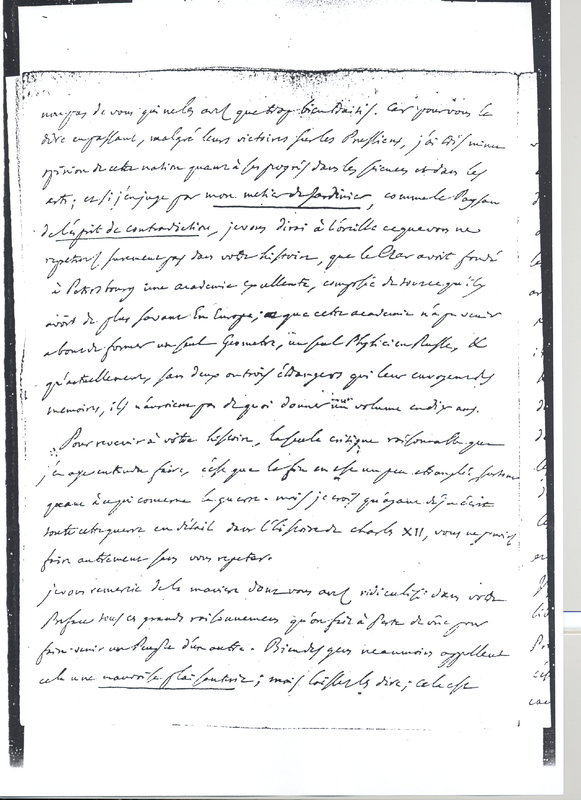 non pas de vous qui ne les avez que trop bien traités. Car pour vous le
dire en passant, malgré leurs victoires sur les Prussiens, j'ai très mince
opinion de cette nation quant à ses progrès dans les sciences et dans les
arts; et si j'en juge par mon metier de Jardinier, comme le Paysan
de l'esprit de contradiction, je vous dirai à l'oreille ce que vous ne
repeterez surement pas dans votre histoire, que le Czar avoit fondé
à Petersbourg une academie excellente, composée de tout ce qu'il y
avoit de plus savant En Europe; que cette academie n'a pu venir
a bout de former un seul Geometre, un seul Physicien Russe, &
qu'actuellement, sans deux ou trois étrangers qui leur envoyent des
memoires, ils n'auroient pas de quoi donner un volume en dix ans.
Pour revenir à votre histoire, la seule critique raisonnable que
j'en aye entendu faire, c'est que la fin en est un peu etranglée, surtout
quant à ce qui concerne la guerre. mais je crois qu'ayant déja écrit
toute cette guerre en détail dans l'histoire de charles XII, vous ne pouviez
faire autrement sans vous repeter.
je vous remercie de la maniere dont vous avez ridiculisé dans votre
Preface tous ces grands raisonnemens qu'on fait à Perte de vüe pour
faire venir un Peuple d'un autre. Bien des gens neanmoins appellent
cela une mauvaise plaisanterie; mais laissez les dire; cela est